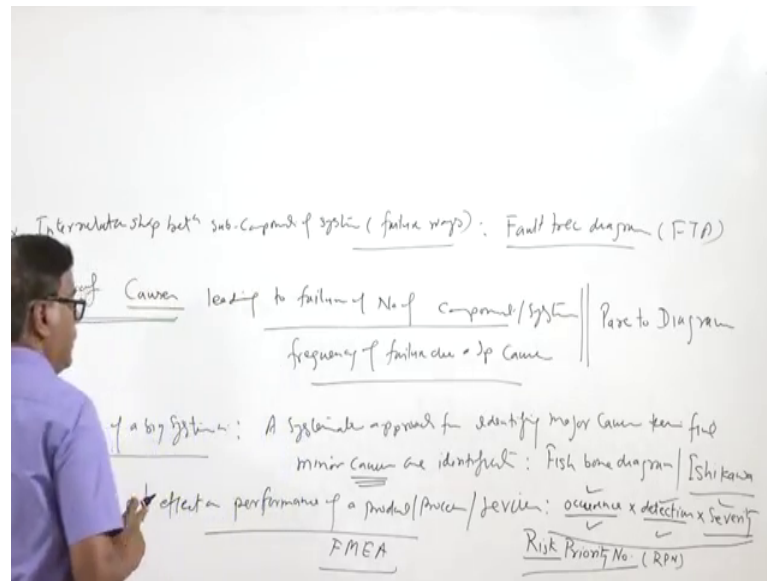 Interrelationship betn sub-component of system (failure ways): Fault tree diagram (FTA)
of Causes leading to failure of No of component/System || Pareto Diagram
frequency of failure due to Sp Cause
of a big System: A Systematic approach for identifying major Causes then find
minor Causes are identified: Fish bone diagram / Ishikawa
effect on performance of a product/process/service: occurrence x detection x Severity
FMEA Risk Priority No. (RPN)